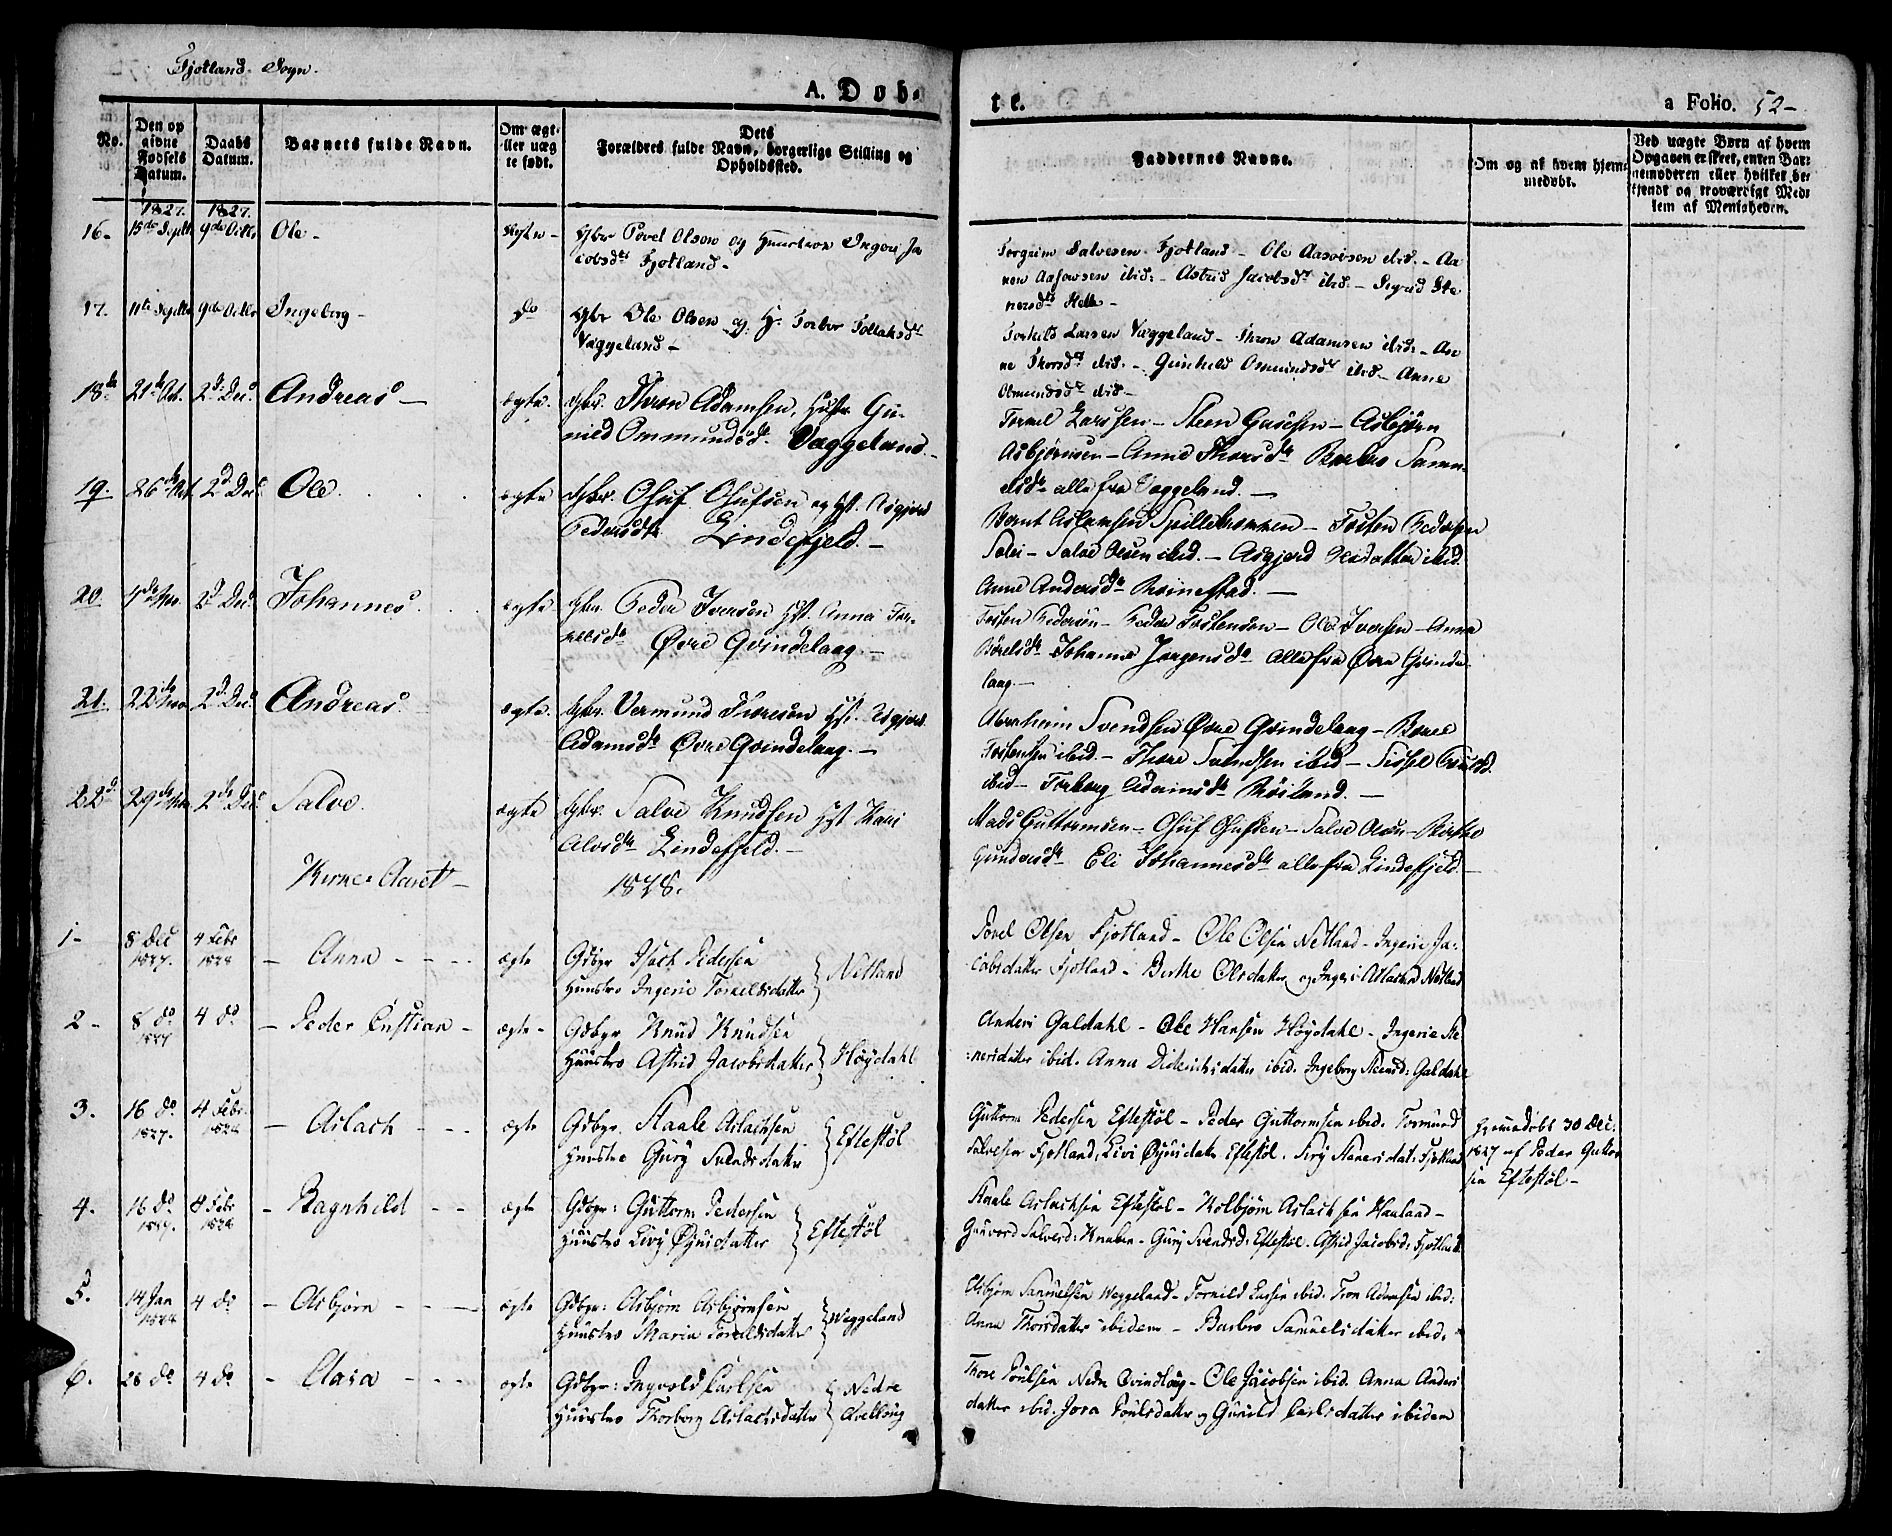 Fjotland Sogn.
A. Døb-
te.
a Folio. 52-
No.
Den op
givne
Fødsels
Datum.
Daabs
Datum.
Barnets fulde Navn.
Om ægte
eller uæg
te født.
Dets
Forældres fulde Navn, borgerlige Stilling og
Opholdssted.
Faddernes Navne.
Om og af hvem hjem-
medøbt.
Ved uægte Børn af hvem
Opgaven er skeet, enten Bar-
nemoderen eller hvilket be-
kjendt og troværdigt Med-
lem af Menigheden.
1827. 1827.
16- 15de Septbr 9de Octbr Ole- Ægte- Gbr Povel Olsen og Hunstroe Inger Ja
cobsdtr Fjotland-
Torgrim Salvesen Fjotland- Ole Aasvisen ibid.- Aa
nen ibid:- Astrid Jacobsdtr ibid.- Sigrid Ste
nersdtr Helle-
17. 11te Septbr 9de Octbr Ingeborg- do Gbr Ole Olsen og H. Torbor
Væggeland-
Torkild Larsen Væggeland- Thron Adamsen ibid.- An
ne Thorsdtr ibid.- Gunhild Omundsdtr ibid- Anne
Omundsdtr ibid-
18de 21de Oct. 2d. Dec. Andreas- ægte. Gbr. Thron Adamsen, Hustr. Gu-
nild Ommundsdtr Væggeland.-
Tormel Larssen- Steen- Asbjørn
Asbjørnsen- Anne Thorsdtr Barbro Samu-
elsdtr alle fra Væggeland.-
19. 26de Oct. 2d Dec. Ole. ægte Gbr. Oluf Olufsen og Hst. Asgjerd
Pedersdtr Lindefjeld.-
Bernt Aslaksen - Tosten Pedersen
- Salve Olsen ibid.- Asgjerd ibid.
Anne Andersdtr Røinestad.-
20 2d Dec. Johannes. ægte Gbr. Peder Iversen Hst. Anna Tor-
kelsdtr Øvre Qvindelaag.-
Tosten Pedersen- Peder Tostensen- Ole Iversen- Anna
Johanne Jørgensdtr alle fra Øvre Qvinde-
laag-
21. 22de Nov 2d. Dec. Andreas. ægte. Gbr. Vermund Iversen Hst. Asgjerd
Adamsdtr Øvre Qvindelaag.-
Abraham Svendsen Øvre Qvindelaag-
Tostensen ibid.- Thore Svendsen ibid- Sissel
ibid- Torborg Adamsdtr Røiland.-
22d 29de Nov 2de Dec Salve. ægte Gbr. Salve Knudsen Hst Kari
Alvsdtr Lindefjeld.-
Mads Guttormsen- Oluf Olufsen- Salve Olsen- Birthe
Gundersdtr Eli Johannesdtr alle fra Lindefjeld.-
Kirke-Aaret- 1828.
1- 8 Dec 1827. 4 Febr 1828 - Anna - - - ægte Gdbgr Isach Pedersen
Hunstro Ingerie Torkelsdatter } Netland
Povel Olsen Fjotland- Ole Olsen Netland- Ingerie Ja-
cobsdatter Fjotland- Berthe Olsdatter og Netland
2- 8 do 1827 4 do - Peder Cristian - ægte- Gdbgr Knud Knudsen
Hunstro Astrid Jacobsdatter } Høydahl
Anders Galdahl- Ole Hansen Høydahl- Ingerie Ste
nersdatter ibid. Anna Diderichsdatter ibid. Ingeborg Steensd: Galdahl
3. 16 do 1827. 4 Febr. 1828 - Aslach - - - ægte Gdbgr. Staale Aslachsen
Hunstro Gury Svendsdatter } Eftestøl
Guttorm Pedersen Eftestøl- Peder Guttormsen ibid. Tormund
Salvesen Fjotland, Livi Eftestøl. Siry Fjotland
Hjemmedøbt 30 Dec:
1827 af Peder Guttor
sen Eftestøl-
4. 16 do 1827. 4 Febr 1828 - Ragnhild - - ægte Gdbgr: Guttorm Pedersen
Hunstro Livy } Eftestøl
Staale Aslachsen Eftestøl- Kolbjørn Aslachsen Haaland-
Gunvord Salvesd: Knaben- Gury Svendsd: Eftestøl. Astrid Jacobsd: Fjotland
5. 14 Jan 1828 4 do - Asbjørn - - - ægte Gdbgr: Asbjørn Asbjørnsen
Hunstro Maria Torkelsdatter } Weggeland
Asbjørn Samuelsen Weggeland- ibid. Tron Adamsen ibid:
Anna Thorsdatter ibidem- Barbro Samuelsdatter ibid:
6. 28 do 4 do - Clara - - - ægte Gdbgr: Ingvold Carlsen
Hunstro Thorborg Aslachsdatter } Nedre

Thore Poulsen Nedre Qvindlaug- Ole Jacobsen ibid. Anna Anders
datter ibid. Jora Poulsdatter og Gunild Carlsdatter ibidem